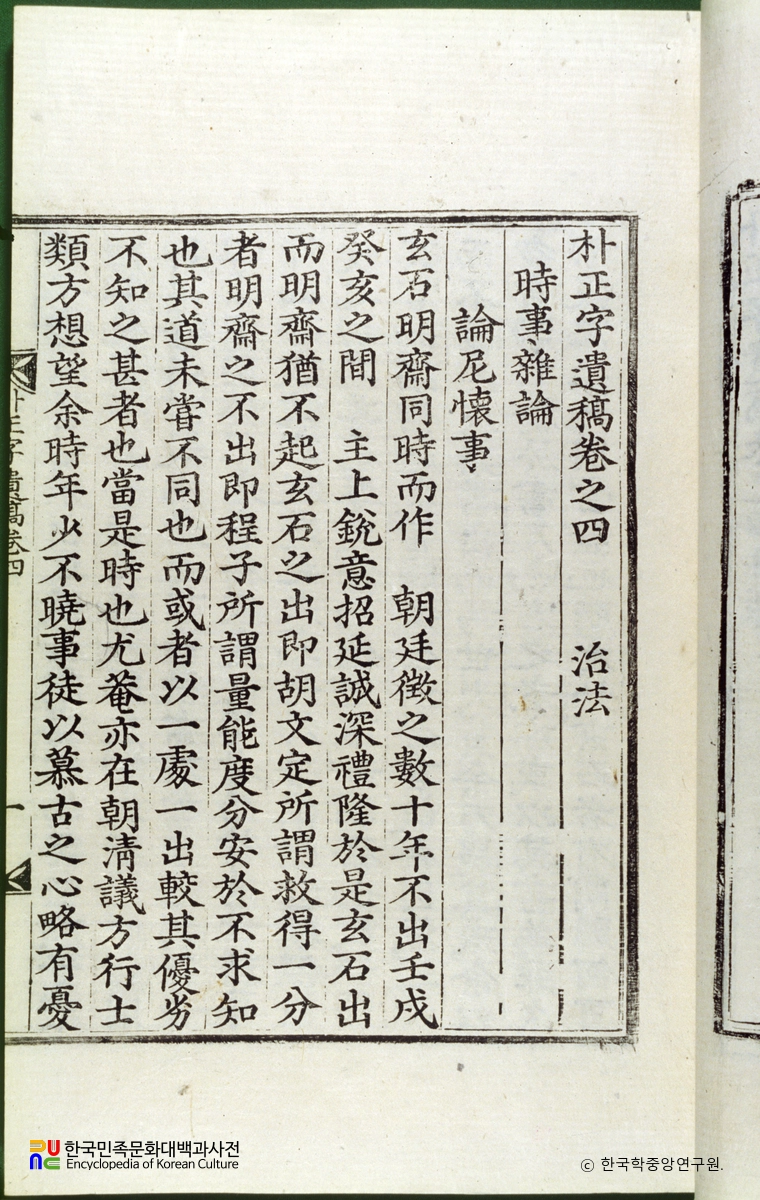 朴正字遺稿卷之四 治法
時事雜論
論尼懷事
玄石明齋同時而作 朝廷徵之數十年不出壬戌
癸亥之間 主上銳意招延誠深禮隆於是玄石出
而明齋猶不起玄石之出即胡文定所謂救得一分
者明齋之不出即程子所謂量能度分安於不求知
也其道未嘗不同也而或者以一處一出較其優劣
不知之甚者也當是時也尤菴亦在朝淸議方行士
類方想望余時年少不曉事徒以慕古之心略有憂
朴正字遺稿卷四 一
한국민족문화대백과사전
Encyclopedia of Korean Culture
© 한국학중앙연구원.